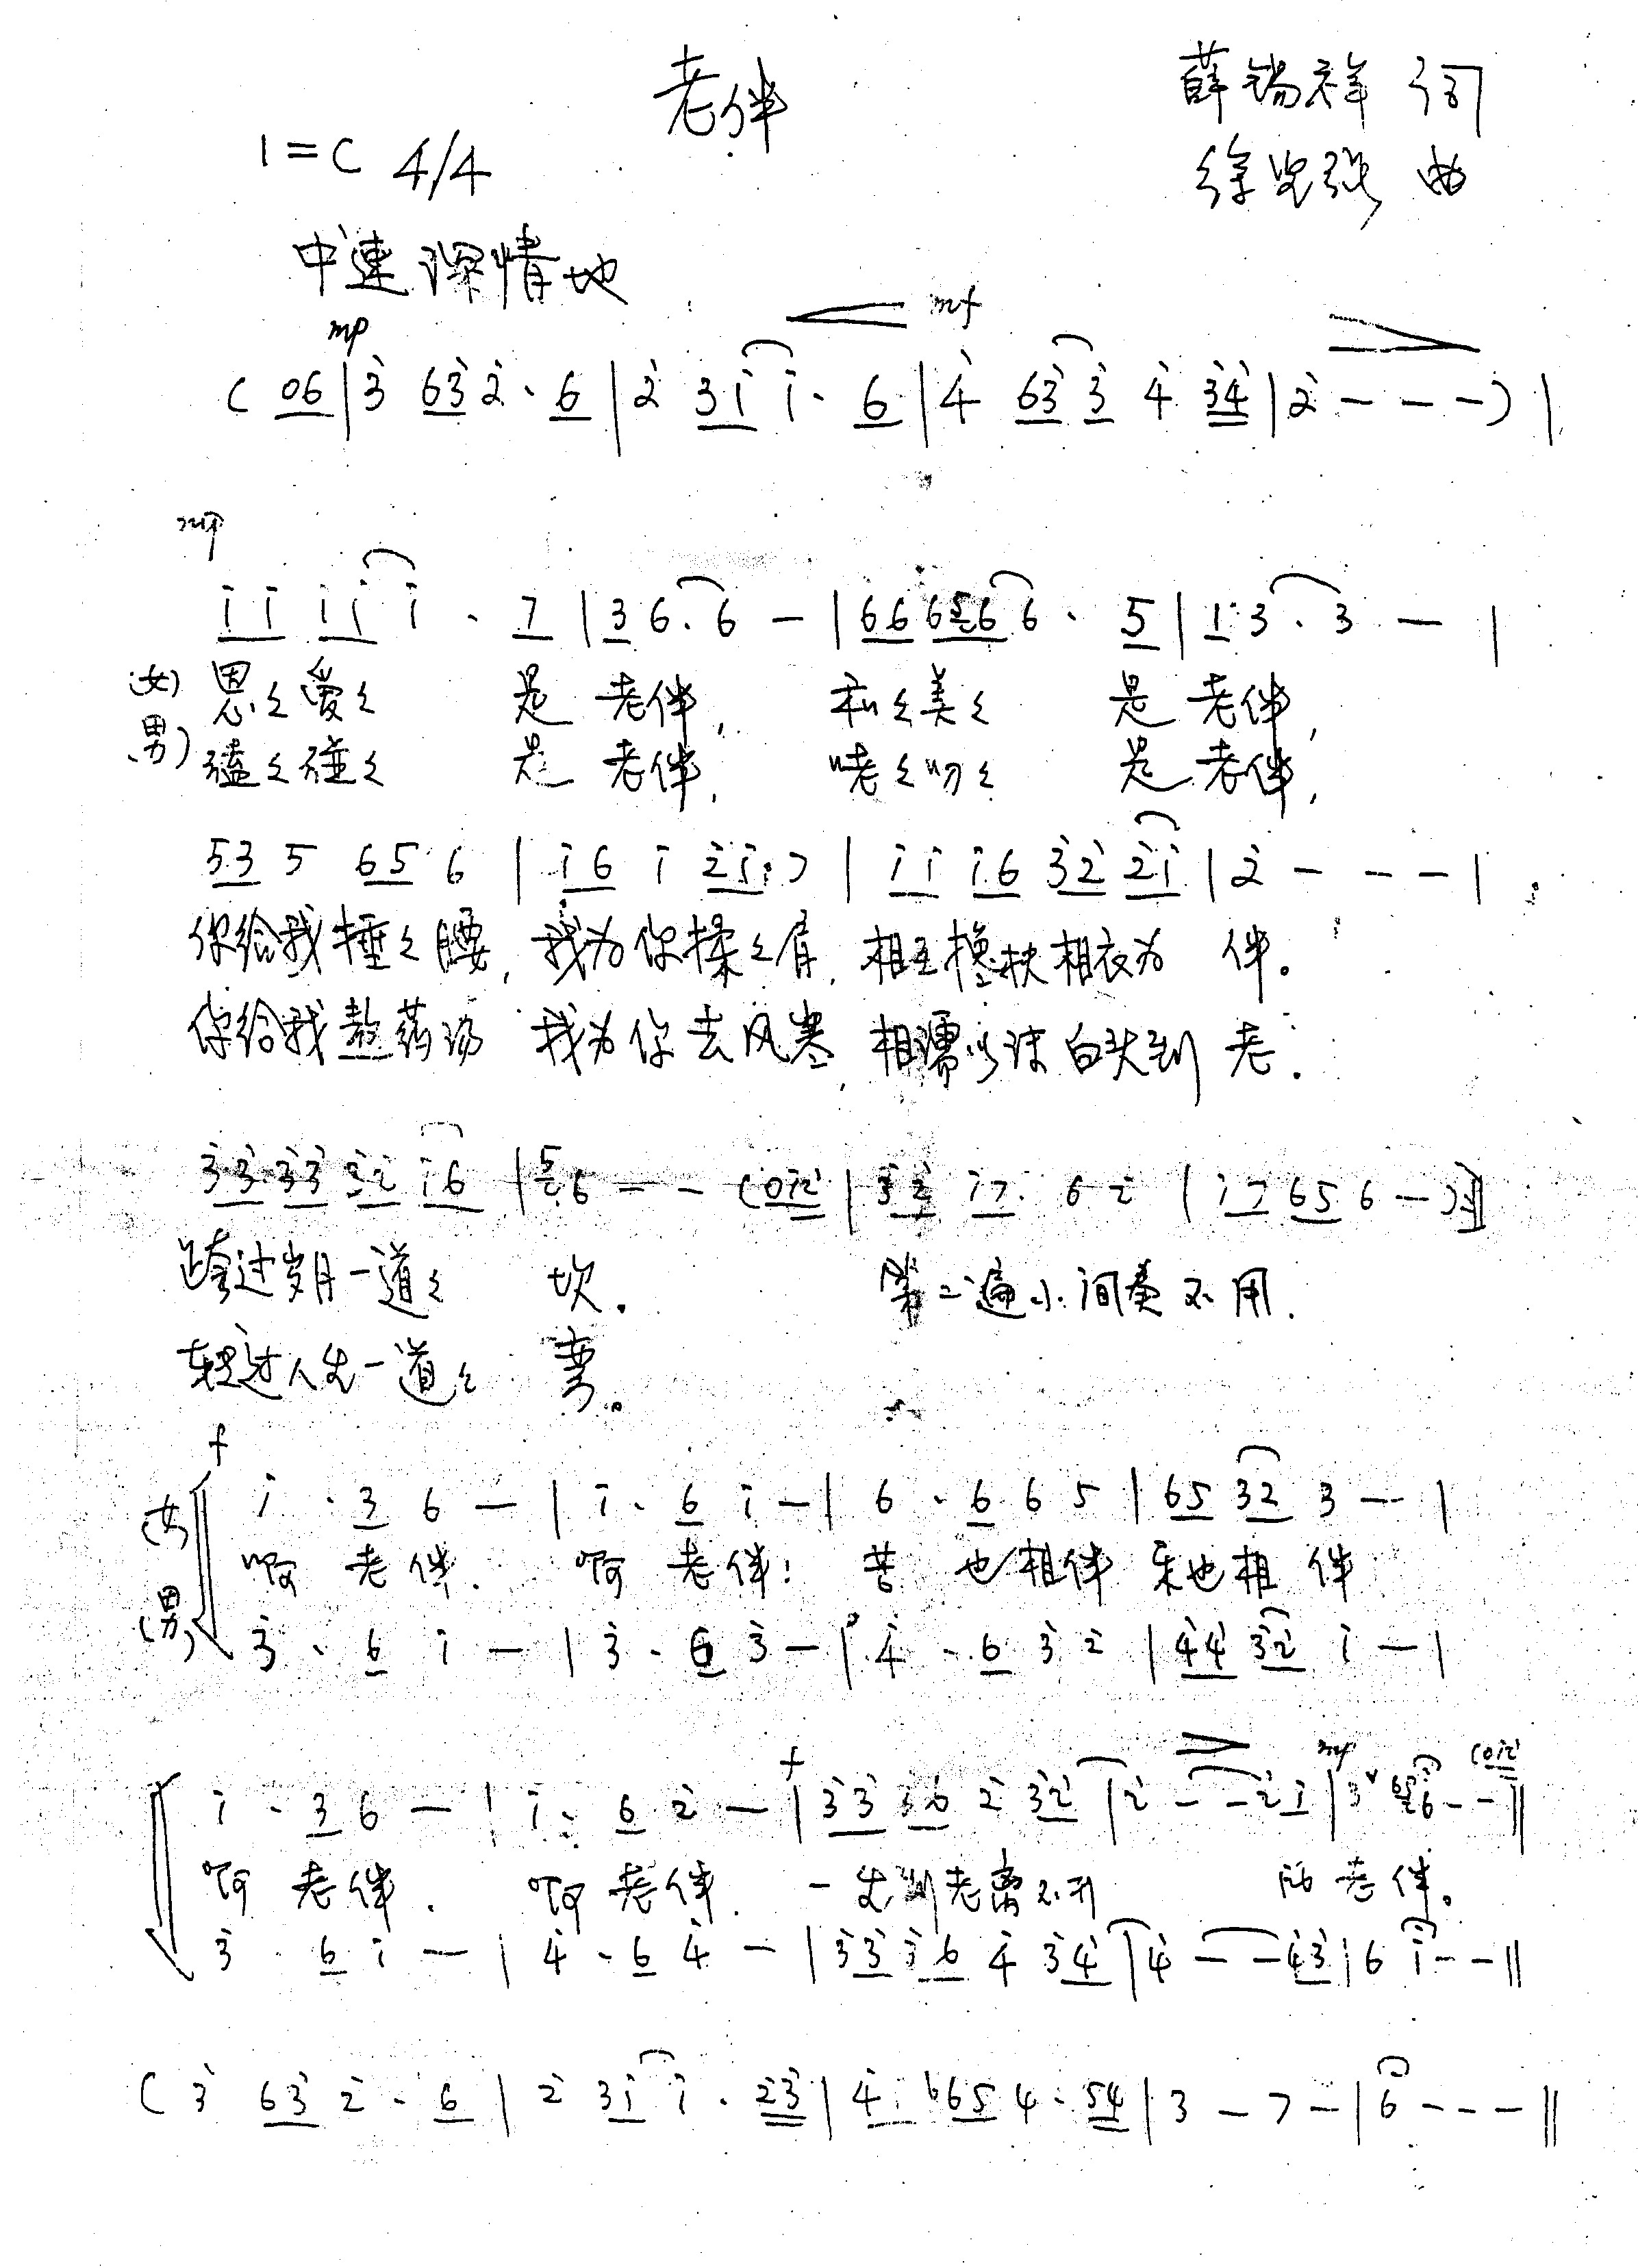 老伴
薛锡祥 词
1=C 4/4
徐 曲
中速 深情地
mp mf
( 06 | 3̇ 63̇ 2̇ · 6 | 2̇ 3̇1̇ 1̇ · 6 | 4̇ 63̇ 3̇ 4̇ 3̇4̇ | 2̇ - - - ) |
mp
1̇ 1̇ 1̇ 1̇ 1̇ · 7 | 3 6 · 6 - | 6 6 6 5 6 6 · 5 | 1 3 · 3 - |
(女) 恩々爱々 是 老伴, 和々美々 是 老伴,
(男) 磕々碰々 是 老伴, 唠々叨々 是 老伴,
53 5 65 6 | 1̇6 1̇ 2̇1̇ 7 | 1̇1̇ 1̇6 3̇2̇ 2̇1̇ | 2̇ - - - |
你给我捶々腰, 我为你揉々肩, 相互搀扶相衣为 伴。
你给我熬药汤 我为你去风寒, 相濡以沫白头到 老.
3̇3̇ 3̇3̇ 3̇2̇ 1̇6 | 5 6 - - (01̇2̇ | 3̇2̇ 1̇7 6 2̇ | 1̇7 65 6 - ) :||
跨过岁月一道々 坎.
第二遍小间奏不用.
人生一道々 弯。
f
(女) 1̇ · 3 6 - | 1̇ · 6 1̇ - | 6 · 6 6 5 | 65 32 3 - |
啊 老伴. 啊 老伴! 苦 也相伴 乐也相 伴
(男) 3̇ · 6 1̇ - | 3̇ · 6 3̇ - | 4̇ · 6 3̇ 2̇ | 4̇4̇ 3̇2̇ 1̇ - |
f mp (01̇2̇
1̇ · 3 6 - | 1̇ · 6 2̇ - | 3̇3̇ 3̇6 2̇ 3̇2̇ | 2̇ - - 2̇1̇ | 3̇ 6 - - ||
啊 老伴. 啊 老伴. 一生到老离不开 老伴。
3̇ · 6 1̇ - | 4̇ · 6 4̇ - | 3̇3̇ 3̇6 4̇ 3̇4̇ | 4̇ - - 4̇3̇ | 6 1̇ - - ||
( 3̇ 63̇ 2̇ · 6 | 2̇ 3̇1̇ 1̇ · 2̇3̇ | 4̇ 665 4 · 54 | 3 - 7 - | 6 - - - ||